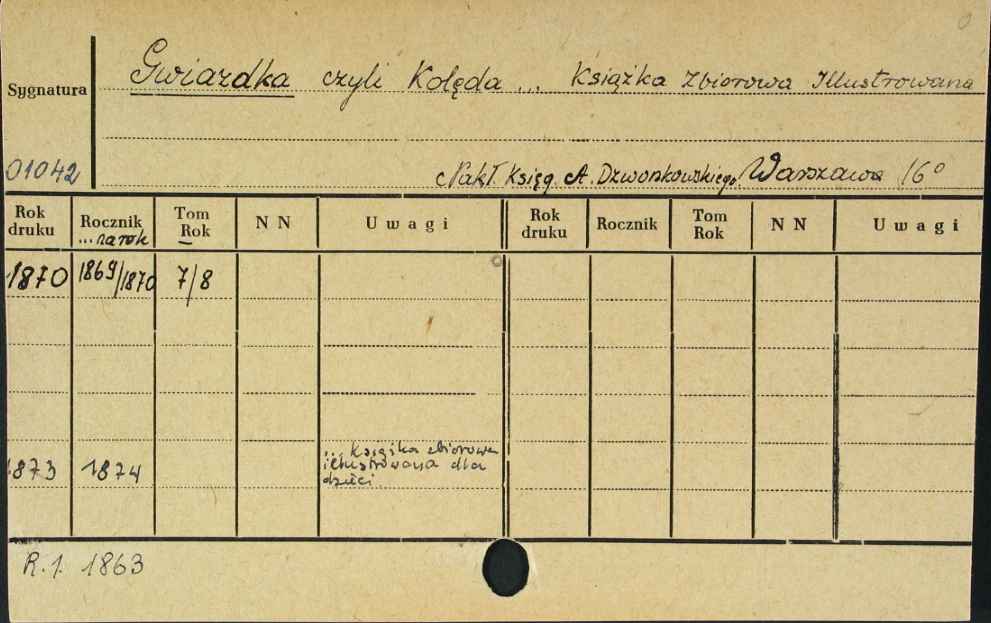 Gwiazdka czyli Kolęda ... Książka Zbiorowa Illustrowana
Sygnatura
01042
Nakł. Księg. A. Dzwonkowskiego. Warszawa 16°
Rok druku Rocznik ...na rok Tom Rok N N Uwagi Rok druku Rocznik Tom Rok N N Uwagi
1870 1869/1870 7/8
1873 1874 ... książka zbiorowa
illustrowana dla
dzieci.
R. 1. 1863